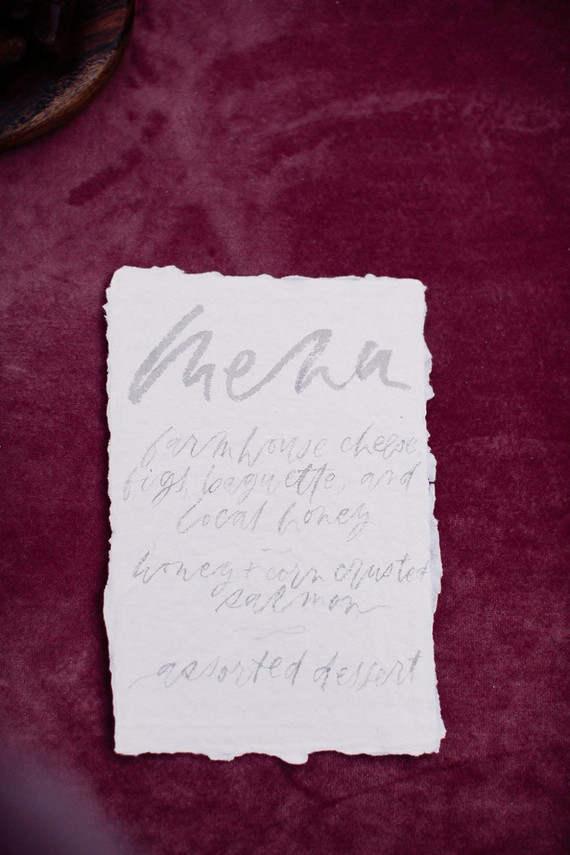 menu
farmhouse cheese,
figs, baguette, and
local honey
honey + corn crusted
salmon
assorted dessert